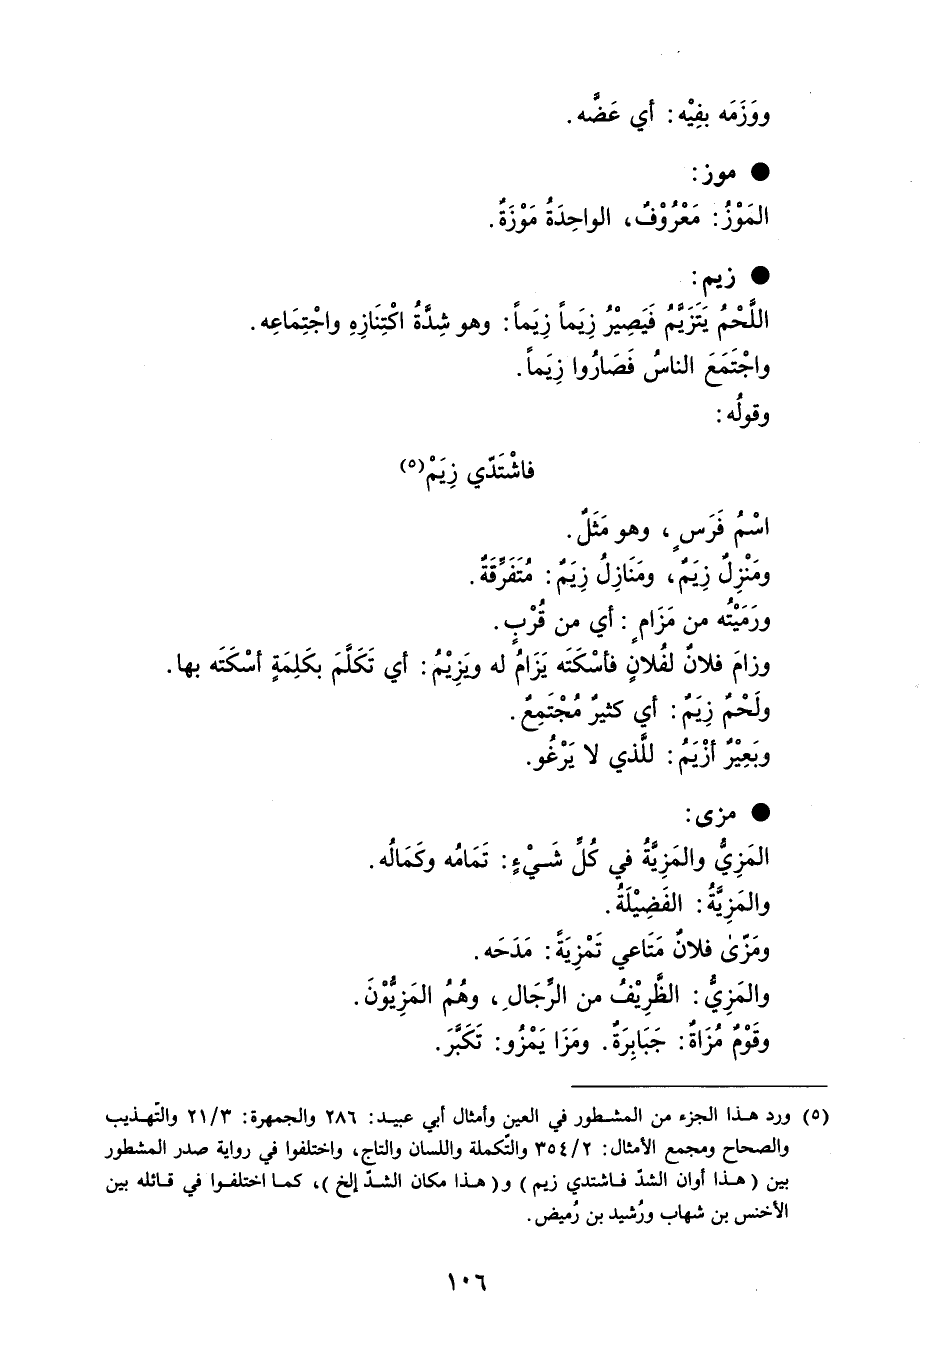 ووَزَمَه بفِيْه: أي عَضَّه.
● موز:
المَوْزُ: مَعْرُوْفٌ، الواحِدَةُ مَوْزَةٌ.
● زيم:
اللَّحْمُ يَتَزَيَّمُ فَيَصِيْرُ زِيَماً زِيَماً: وهو شِدَّةُ اكْتِنَازِهِ واجْتِمَاعِه.
واجْتَمَعَ الناسُ فَصَارُوا زِيَماً.
وقولُه:
فاشْتَدّي زِيَمْ(٥)
اسْمُ فَرَسٍ، وهو مَثَلٌ.
ومَنْزِلٌ زِيَمٌ، ومَنَازِلُ زِيَمٌ: مُتَفَرِّقَةٌ.
ورَمَيْتُه من مَزَامٍ: أي من قُرْبٍ.
وزامَ فلانٌ لفُلانٍ فأسْكَتَه يَزَامُ له ويَزِيْمُ: أي تَكَلَّمَ بكَلِمَةٍ أسْكَتَه بها.
ولَحْمٌ زِيَمٌ: أي كثيرٌ مُجْتَمِعٌ.
وبَعِيْرٌ أزْيَمُ: للَّذي لا يَرْغُو.
● مزى:
المَزِيُّ والمَزِيَّةُ في كُلِّ شَيْءٍ: تَمَامُه وكَمَالُه.
والمَزِيَّةُ: الفَضِيْلَةُ.
ومَزّىٰ فلانٌ مَتَاعي تَمْزِيَةً: مَدَحَه.
والمَزِيُّ: الظَّرِيْفُ من الرِّجَالِ، وهُمُ المَزِيُّوْنَ.
وقَوْمٌ مُزَاةٌ: جَبَابِرَةٌ. ومَزَا يَمْزُو: تَكَبَّرَ.
(٥) ورد هذا الجزء من المشطور في العين وأمثال أبي عبيد: ٢٨٦ والجمهرة: ٢١/٣ والتّهذيب
والصحاح ومجمع الأمثال: ٣٥٤/٢ والتّكملة واللسان والتاج، واختلفوا في رواية صدر المشطور
بين (هذا أوان الشدّ فاشتدي زيم) و(هذا مكان الشدّ إلخ)، كما اختلفوا في قائله بين
الأخنس بن شهاب ورُشيد بن رُميض.
١٠٦